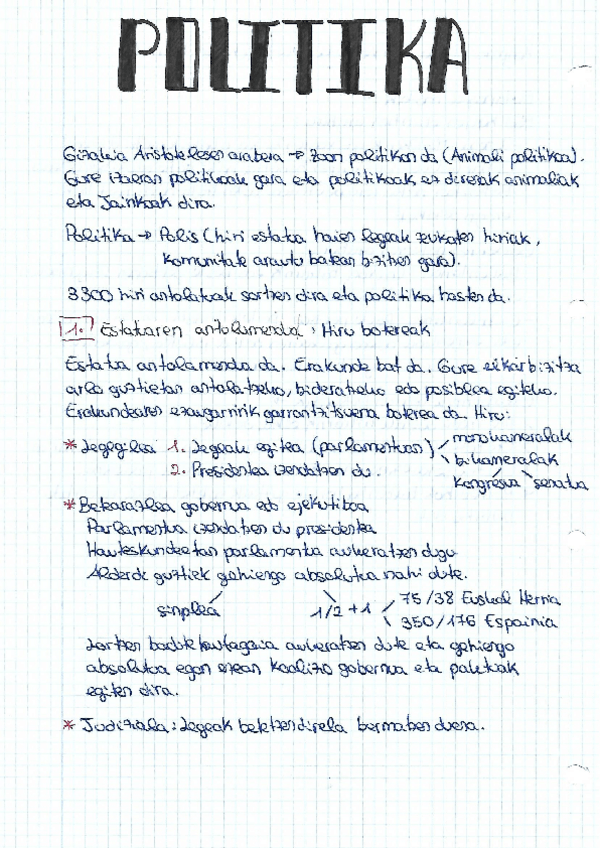 POLITIKA
Gizakia Aristotelesen arabera → Zoon politikon da (Animali politikoa).
Gure izaeran politikoak gara eta politikoak ez direnak animaliak
eta Jainkoak dira.
Politika → Polis (hiri estatua haien legeak zeukaten hiriak,
komunitate arautu batean bizitzen gara).
3300 hiri antolatuak sortzen dira eta politika hasten da.
1. Estatuaren antolamendua: Hiru botereak
Estatua antolamendua da. Erakunde bat da. Gure elkarbizitza
arlo guztietan antolatzeko, bideratzeko edo posiblea egiteko.
Erakundearen ezaugarririk garrantzitsuena boterea da. Hiru:
* Legegilea 1. Legeak egitea (parlamentuan) monokameralak
bikameralak
2. Presidentea izendatzen du.
Kongresua senatua
* Betearazlea gobernua edo ejekutiboa
Parlamentua izendatzen du presidentea
Hauteskundeetan parlamentua aukeratzen dugu
Alderdi guztiek gehiengo absolutua nahi dute.
sinplea 1/2 + 1 75/38 Euskal Herria
350/176 Espainia
Lortzen badute hautagaia aukeratzen dute eta gehiengo
absolutua egon ezean koalizio gobernua eta paktuak
egiten dira.
* Judiziala: Legeak betetzen direla bermatzen duena.